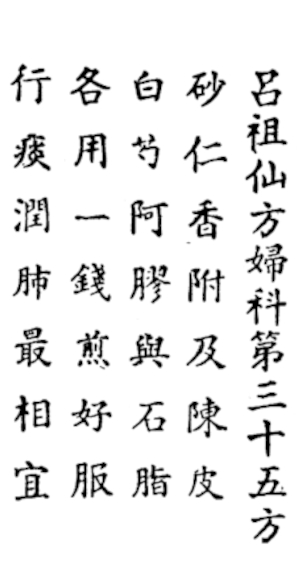 呂祖仙方婦科第三十五方
砂仁香附及陳皮
白芍阿膠與石脂
各用一錢煎好服
行痰潤肺最相宜